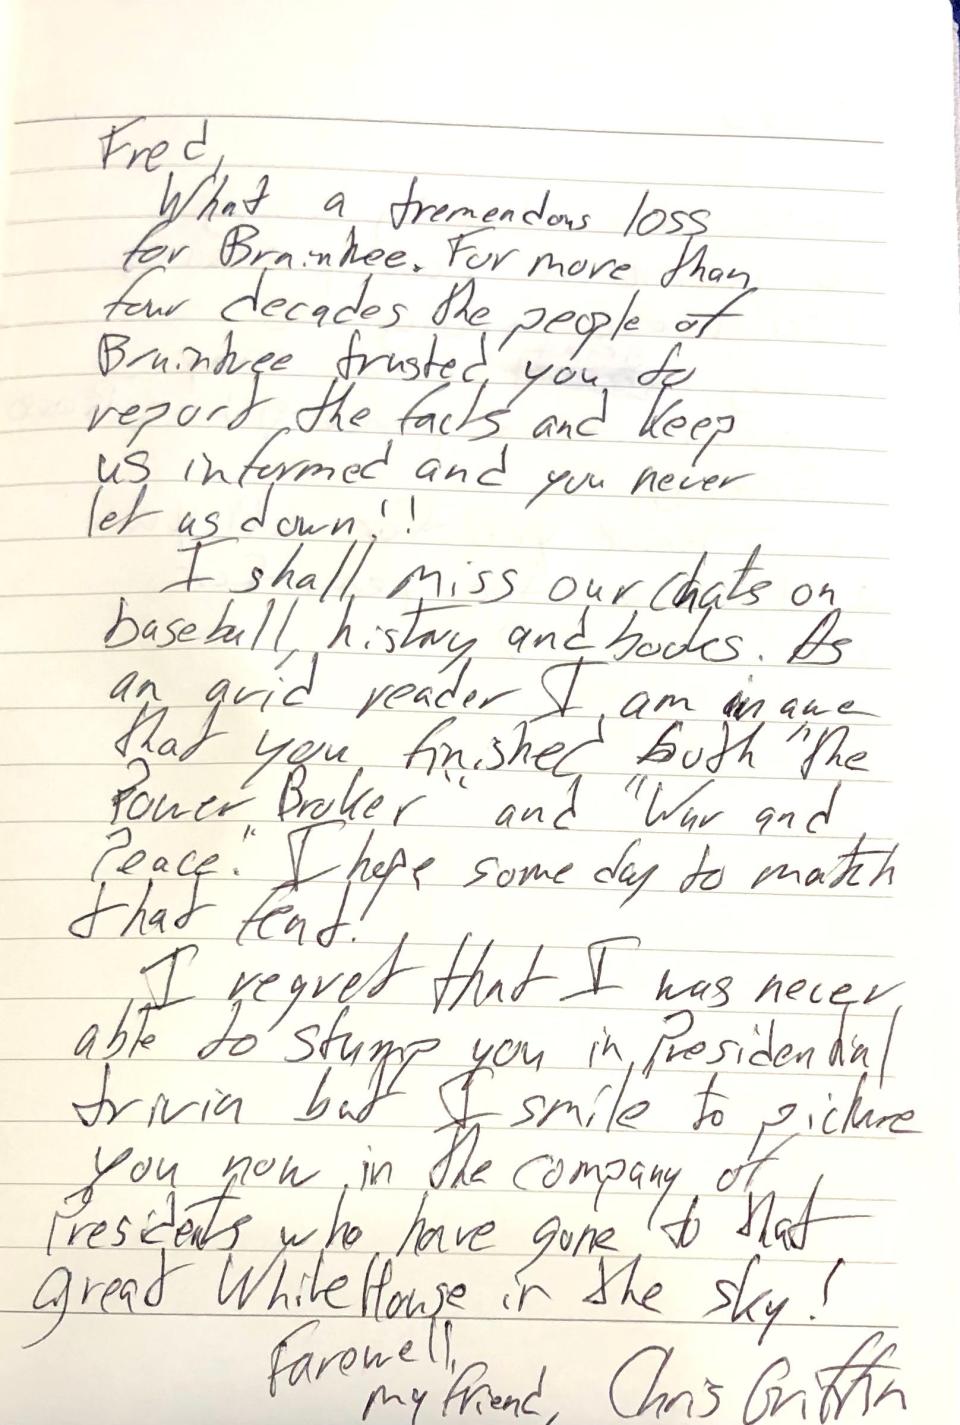 Fred,
What a tremendous loss
for Braintree. For more than
four decades the people of
Braintree trusted you to
report the facts and keep
us informed and you never
let us down!!
I shall miss our chats on
baseball, history and books. As
an avid reader I am in awe
that you finished both "The
Power Broker" and "War and
Peace." I hope some day to match
that feat!
I regret that I was never
able to stump you in Presidential
trivia but I smile to picture
you now in the company of
Presidents who have gone to that
great White House in the sky!
Farewell,
my friend, Chris Griffin